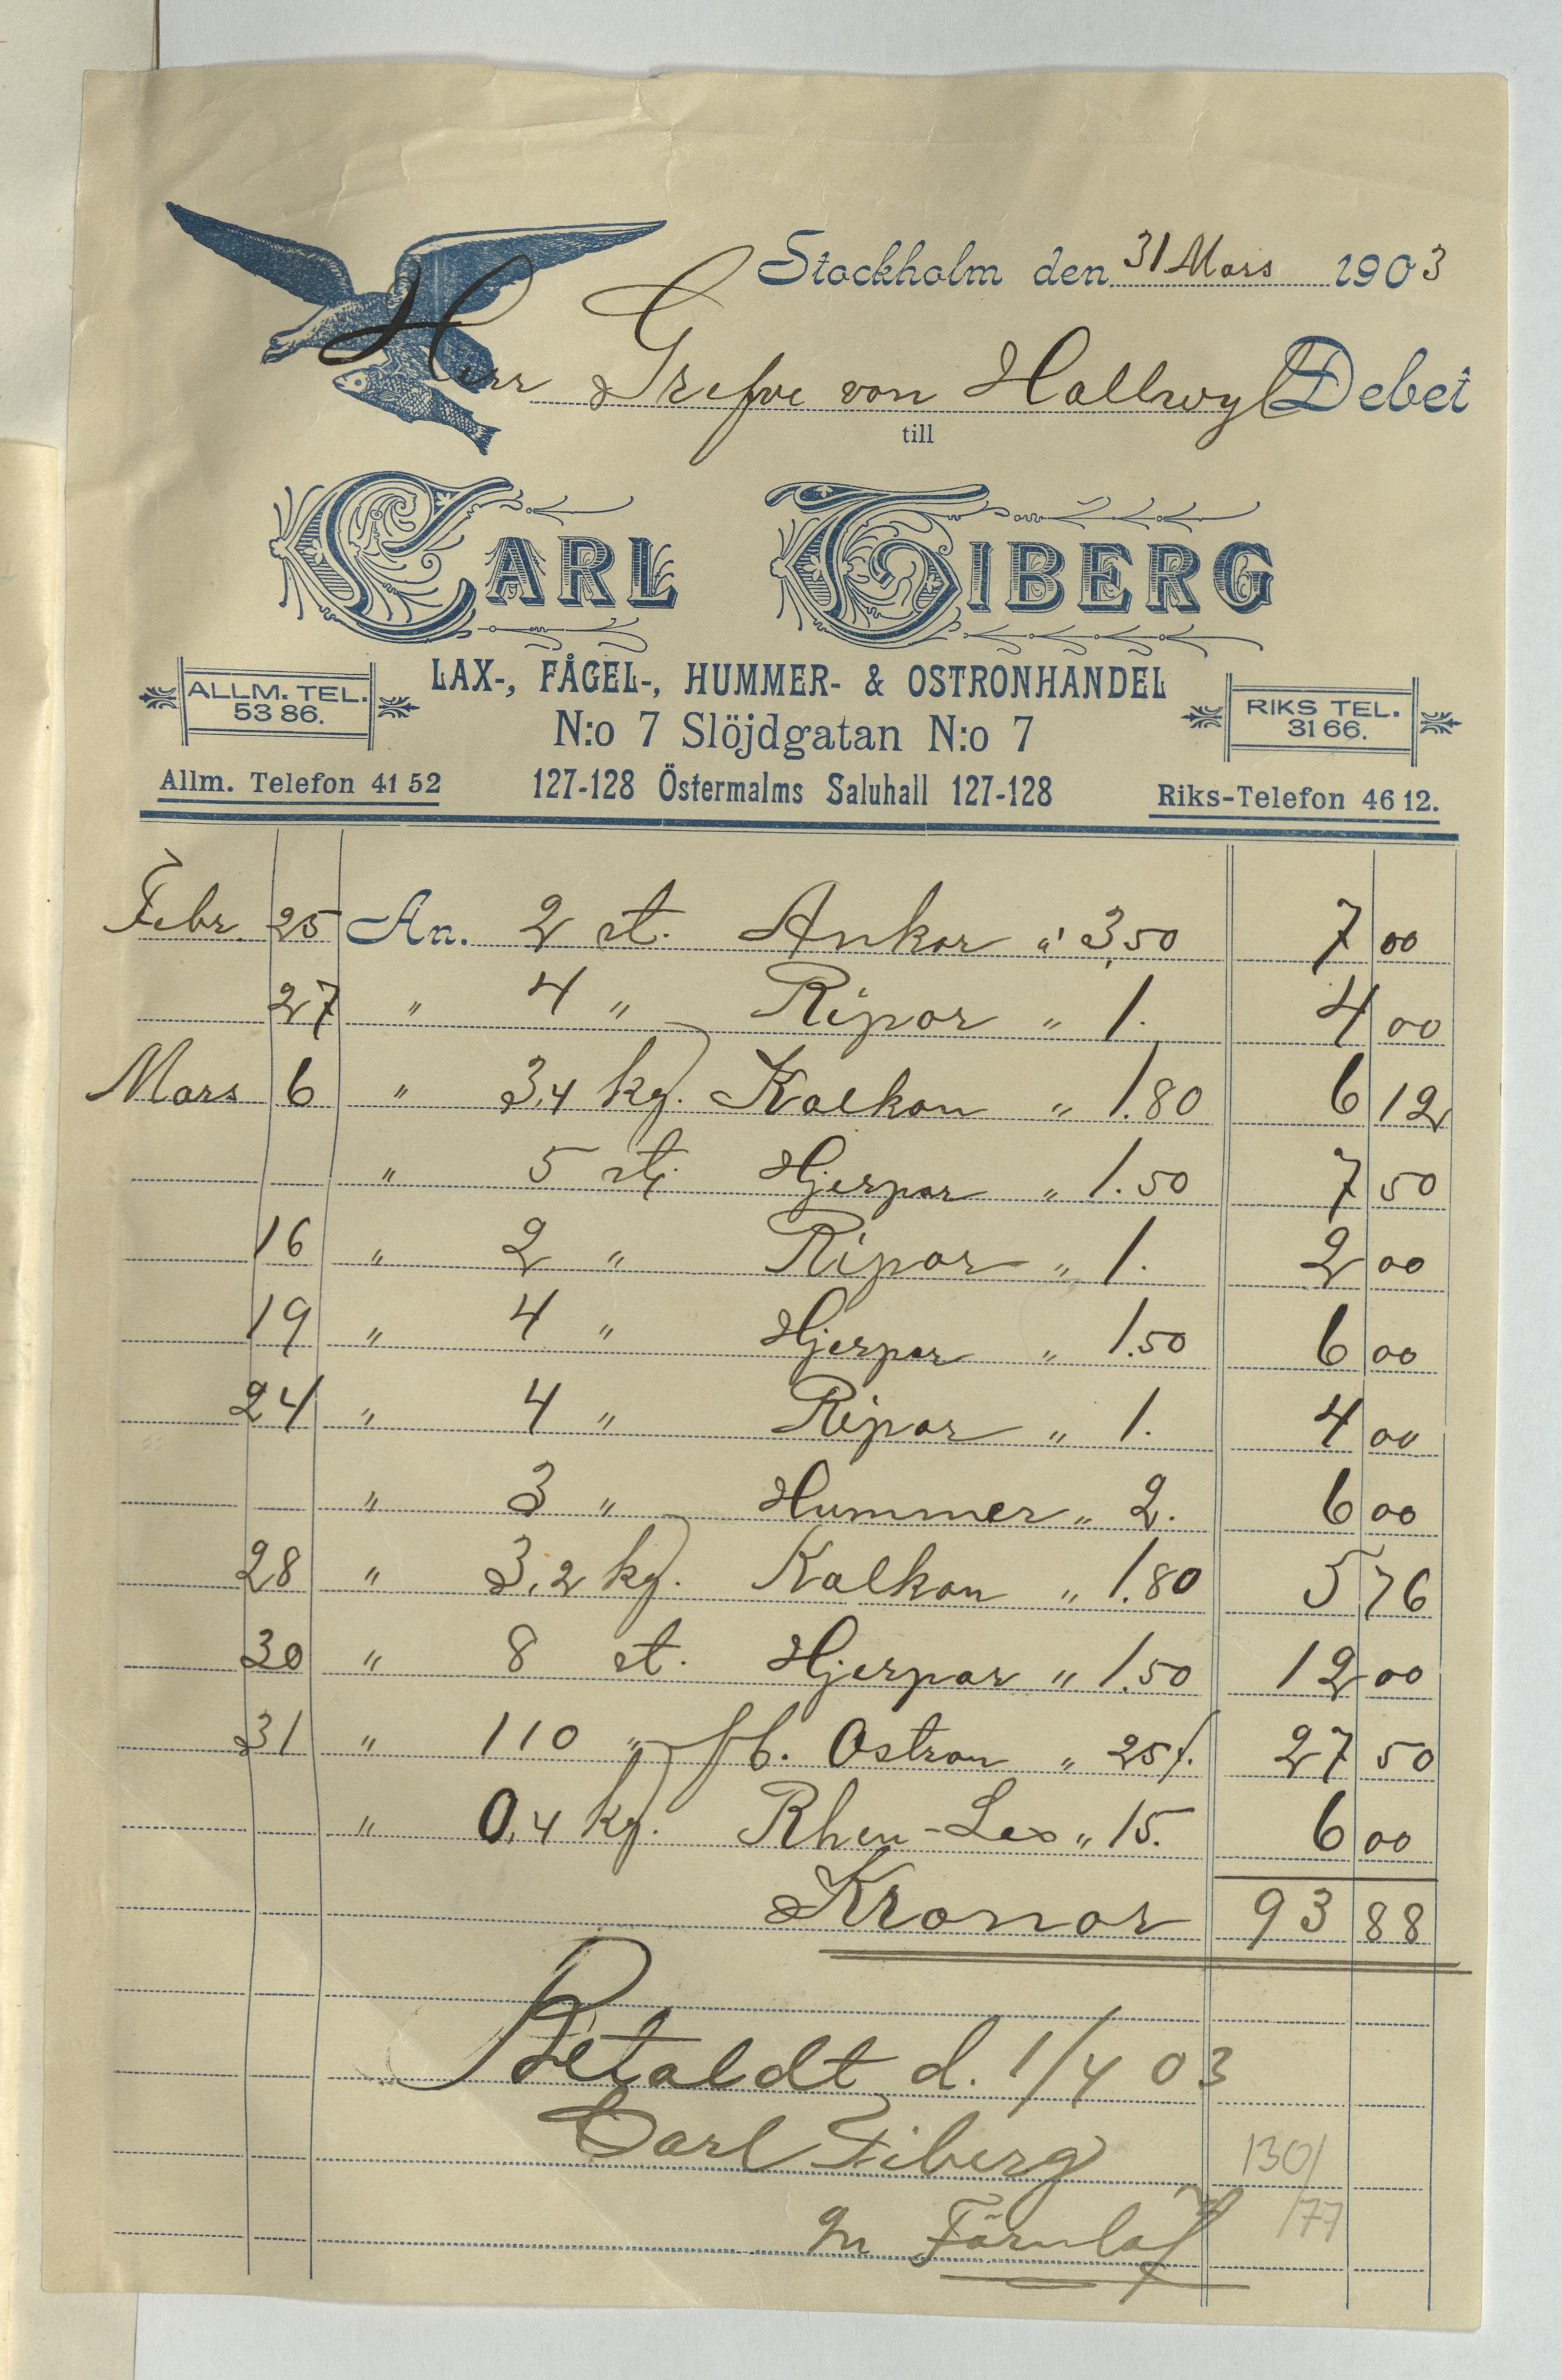 Stockholm den 31 Mars 1903
Herr Grefve von Hallwyl Debet
till
CARL TIBERG
LAX-, FÅGEL-, HUMMER- & OSTRONHANDEL
ALLM. TEL. 53 86.
N:o 7 Slöjdgatan N:o 7
RIKS TEL. 31 66.
Allm. Telefon 41 52 127-128 Östermalms Saluhall 127-128 Riks-Telefon 46 12.
Febr. 25 An. 2 st. Ankor á 3,50 7 00
27 " 4 " Ripor " 1. 4 00
Mars 6 " 3,4 kg. Kalkon " 1.80 6 12
" 5 st. Hjerpar " 1.50 7 50
16 " 2 " Ripor " 1. 2 00
19 " 4 " Hjerpar " 1.50 6 00
24 " 4 " Ripor " 1. 4 00
" 3 " Hummer " 2. 6 00
28 " 3,2 kg. Kalkon " 1.80 5 76
30 " 8 st. Hjerpar " 1.50 12 00
31 " 110 " fb. Ostron " 25/. 27 50
" 0,4 kg. Rhen-Lax " 15. 6 00
Kronor 93 88
Betaldt d. 1/4 03
Carl Tiberg
130/
/77